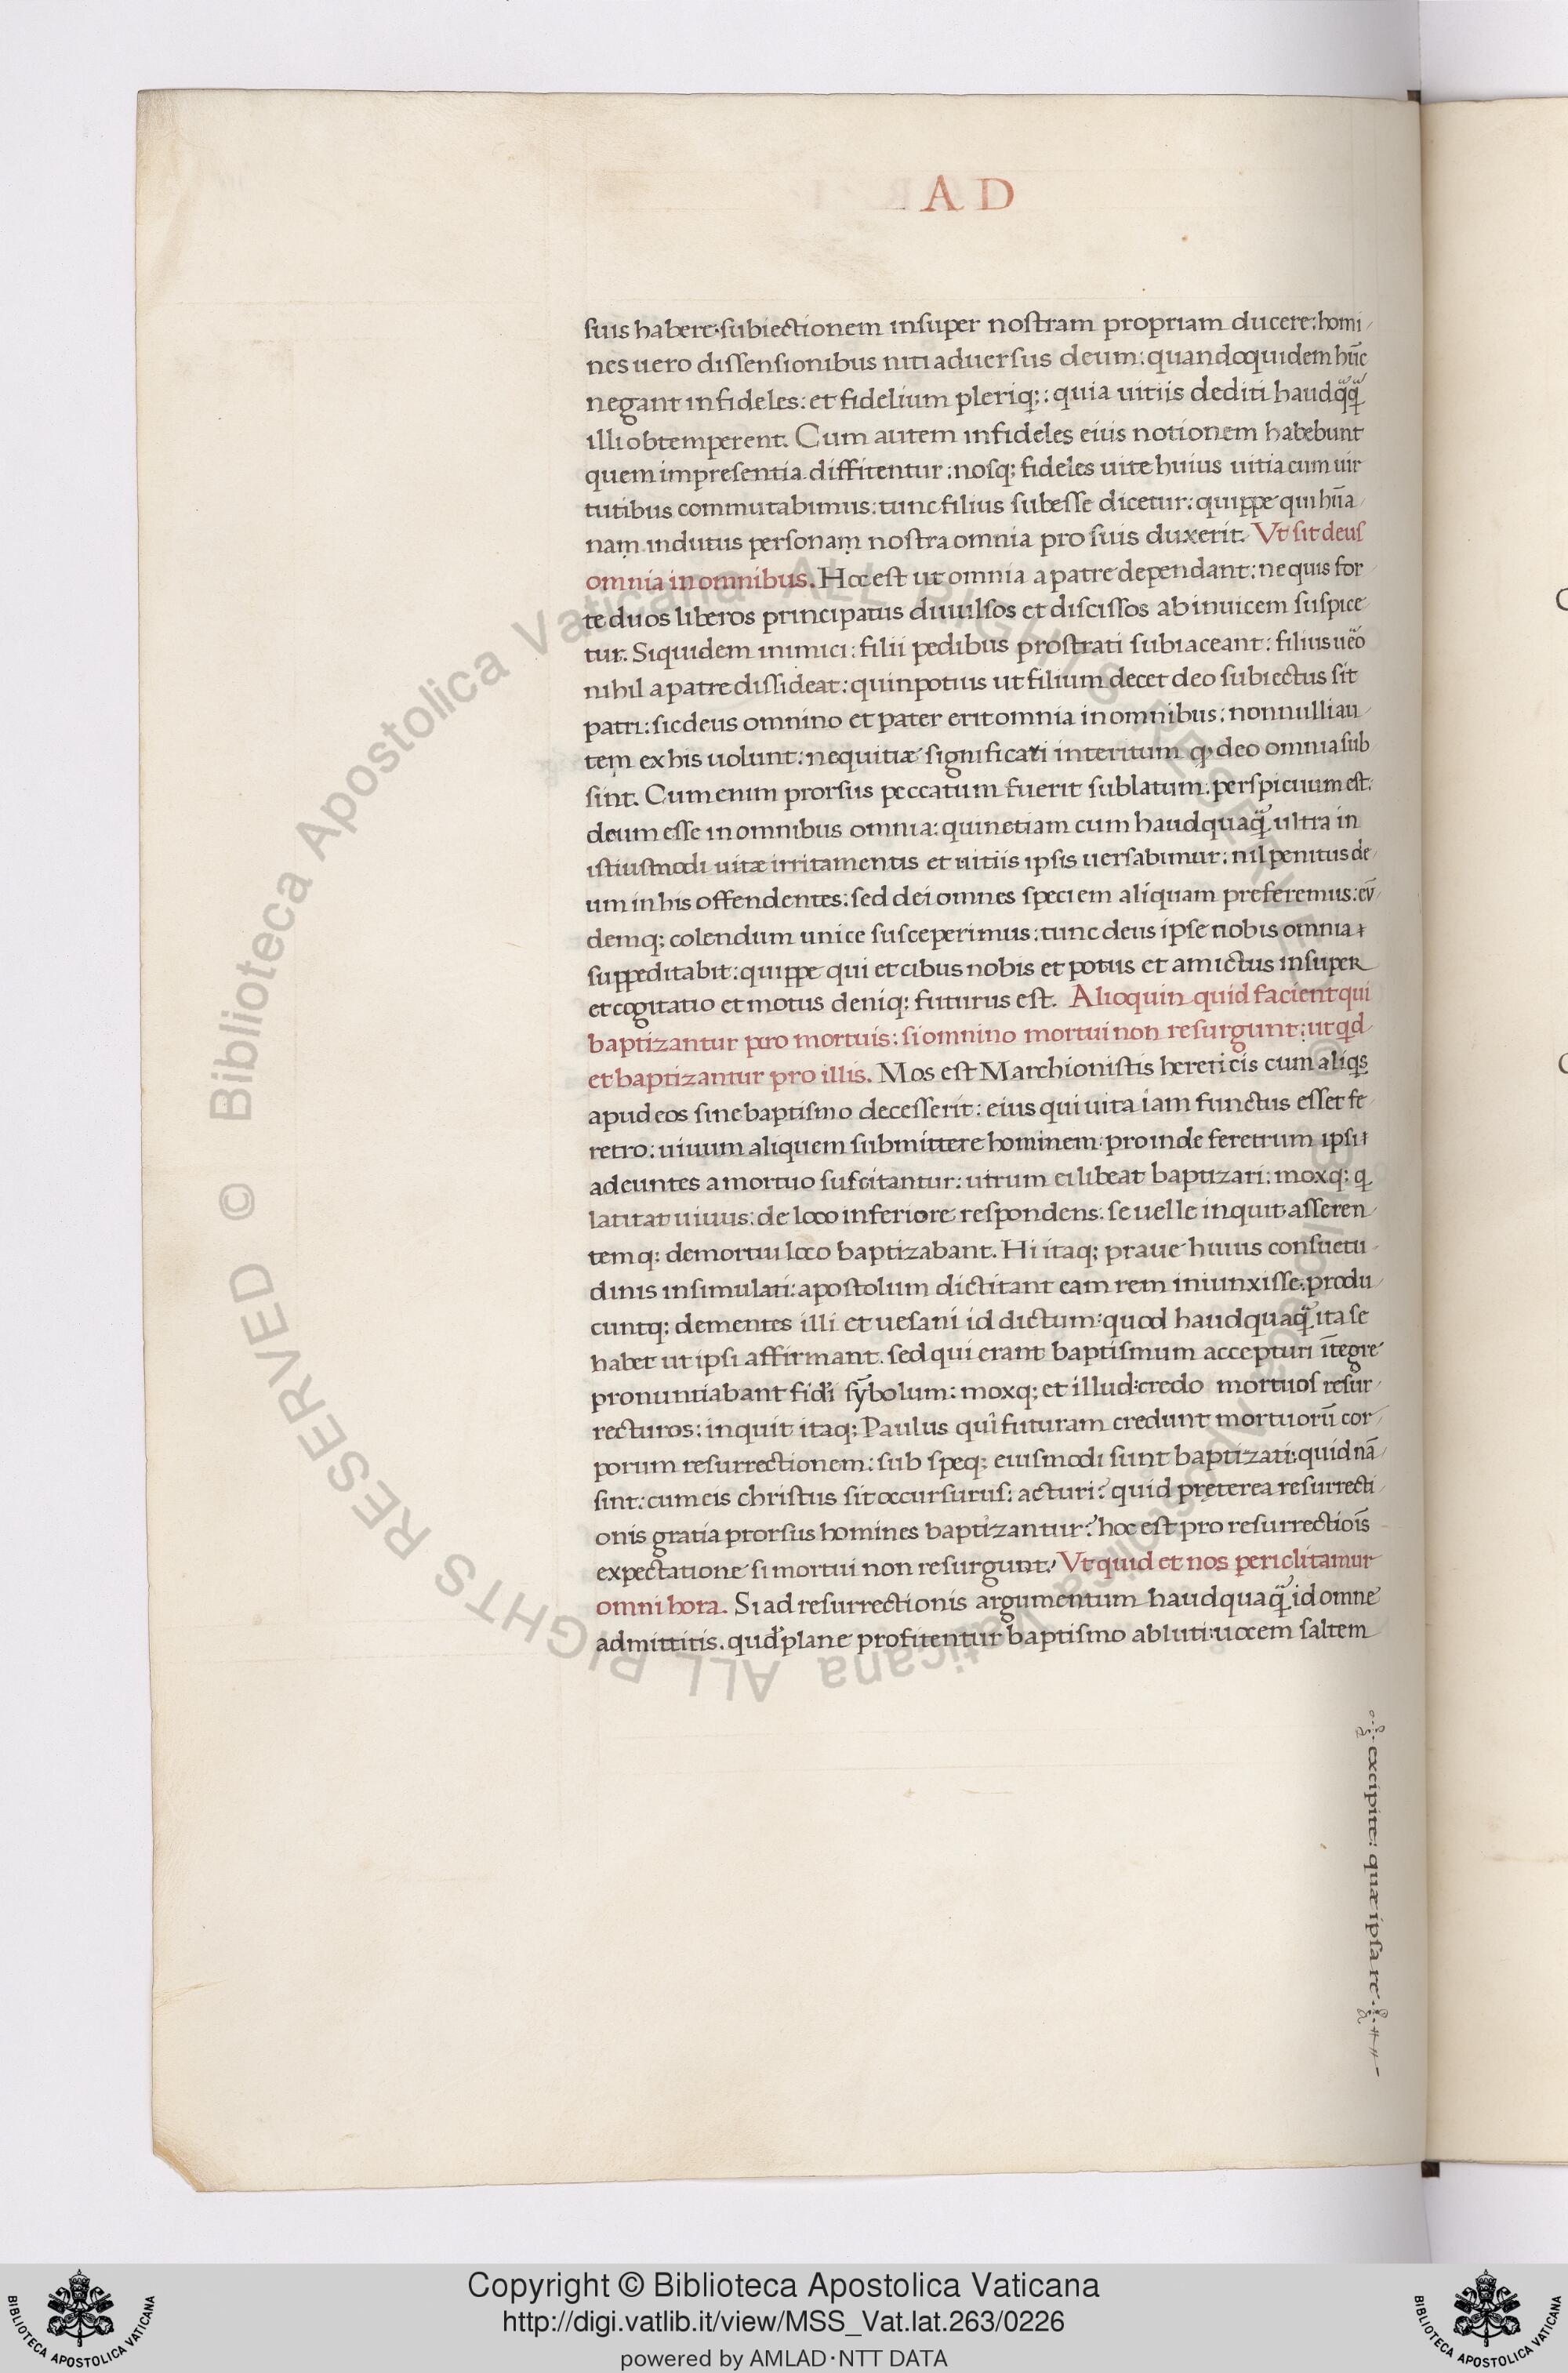 AD
suis habere: subiectionem insuper nostram propriam ducere: homi
nes uero dissensionibus niti aduersus deum: quandoquidem hūc
negant infideles: et fidelium pleriq;: quia uitiis dediti haudq̈q̈
illi obtemperent. Cum autem infideles eius notionem habebunt
quem impresentia diffitentur: nosq; fideles uite huius uitia cum uir
tutibus commutabimus: tunc filius subesse dicetur: quippe qui hūa
nam indutus personam nostra omnia pro suis duxerit. Vt sit deus
omnia in omnibus. Hoc est ut omnia a patre dependant: ne quis for
te duos liberos principatus diuulsos et discissos ab inuicem suspice
tur. Siquidem inimici: filii pedibus prostrati subiaceant: filius uēo
nihil a patre dissideat: quin potius ut filium decet deo subiectus sit
patri: sic deus omnino et pater erit omnia in omnibus: nonnulli au
tem ex his uolunt: nequitiæ significari interitum ꝙ deo omnia sub
sint. Cum enim prorsus peccatum fuerit sublatum. perspicuum est:
deum esse in omnibus omnia: quin etiam cum haudquaq̈ ultra in
istiusmodi uitæ irritamentis et uitiis ipsis uersabimur: nil penitus de
um in his offendentes: sed dei omnes speciem aliquam preferemus: eū
demq; colendum unice susceperimus: tunc deus ipse nobis omnia
suppeditabit: quippe qui et cibus nobis et potus et amictus insuper
et cogitatio et motus deniq; futurus est. Alioquin quid facient qui
baptizantur pro mortuis: si omnino mortui non resurgunt: ut qd
et baptizantur pro illis. Mos est Marchionistis hereticis cum aliqs
apud eos sine baptismo decesserit: eius qui uita iam functus esset fe
retro: uiuum aliquem submittere hominem: proinde feretrum ipsi
adeuntes a mortuo suscitantur: utrum ei libeat baptizari: moxq; q
latitat uiuus: de loco inferiore respondens. se uelle inquit asseren
temq; demortui loco baptizabant. Hi itaq; praue huius consuetu
dinis insimulati: apostolum dictitant eam rem iniunxisse: produ
cuntq; dementes illi et uesani id dictum: quod haudquaq̈ ita se
habet ut ipsi affirmant. sed qui erant baptismum accepturi ītegre
pronuntiabant fidi sȳbolum: moxq; et illud: credo mortuos resur
recturos: inquit itaq; Paulus qui futuram credunt mortuorū cor
porum resurrectionem: sub speq; eiusmodi sunt baptizati: quid nā
sint: cum eis christus sit occursurus: acturi? quid pręterea resurrecti
onis gratia prorsus homines baptizantur? hoc est pro resurrectiois̄
expectatione si mortui non resurgunt. Vt quid et nos periclitamur
omni hora. Si ad resurrectionis argumentum haudquaq̈ id omne
admittitis. qud plane profitentur baptismo abluti: uocem saltem
excipite: quæ ipsa re
© Biblioteca Apostolica Vaticana ALL RIGHTS RESERVED © Biblioteca Apostolica Vaticana ALL RIGHTS RESERVED
Copyright © Biblioteca Apostolica Vaticana
http://digi.vatlib.it/view/MSS_Vat.lat.263/0226
powered by AMLAD·NTT DATA
BIBLIOTECA APOSTOLICA VATICANA
BIBLIOTECA APOSTOLICA VATICANA